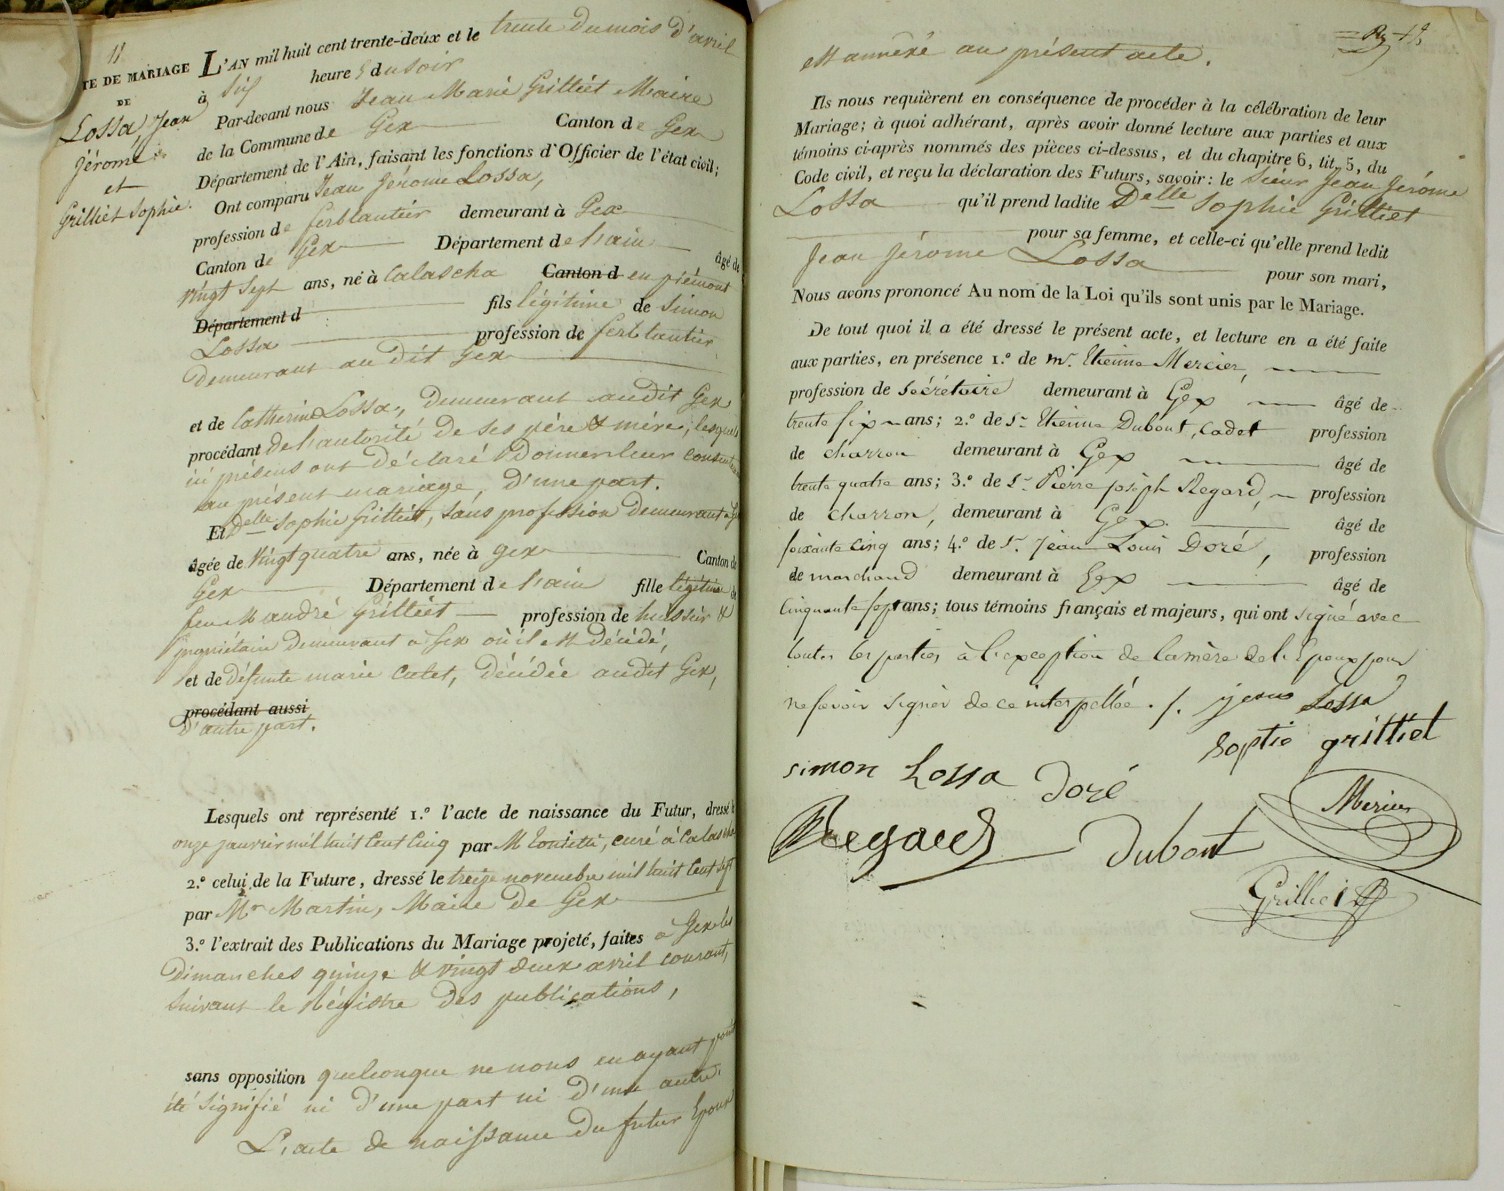 11
TE DE MARIAGE
DE
Lossa Jean
Jérome
et
Grilliet Sophie.
L'AN mil huit cent trente-deux et le trente du mois d'avril
à six heures du soir
Par-devant nous Jean Marie Grilliet Maire
de la Commune de Gex Canton de Gex
Département de l'Ain, faisant les fonctions d'Officier de l'état civil;
Ont comparu Jean Jérome Lossa,
profession de ferblantier demeurant à Gex
Canton de Gex Département de l'ain âgé de
vingt sept ans, né à Calascha Canton d en piémont
Département d fils légitime de Simon
Lossa profession de ferblantier
demeurant au dit Gex
et de Catherine Lossa, demeurant audit Gex
procédant de l'autorité de ses père & mère, lesquels
ici présens ont déclaré donner leur consente
au présent mariage, d'une part.
Et Delle Sophie Grilliet, sans profession demeurant à Gex
âgée de vingt quatre ans, née à Gex Canton de
Gex Département de l'ain fille légitime de
feu M andré Grilliet profession de huissier &
propriétaire demeurant à Gex où il est décédé,
et de défunte marie Catet, décédée audit Gex,
procédant aussi
d'autre part.
Lesquels ont représenté 1.º l'acte de naissance du Futur, dressé le
onze janvier mil huit cent cinq par M curé à Calascha
2.º celui de la Future, dressé le treize novembre mil huit cent sept
par Mr Martin, Maire de Gex
3.º l'extrait des Publications du Mariage projeté, faites à Gex les
Dimanches quinze & vingt deux avril courant,
suivant le régistre des publications,
sans opposition quelconque ne nous en ayant point
été signifié ni d'une part ni d'une autre.
L'acte de naissance du futur Epoux
est annéxé au présent acte.
Ils nous requièrent en conséquence de procéder à la célébration de leur
Mariage; à quoi adhérant, après avoir donné lecture aux parties et aux
témoins ci-après nommés des pièces ci-dessus, et du chapitre 6, tit. 5, du
Code civil, et reçu la déclaration des Futurs, savoir: le sieur Jean Jérome
Lossa qu'il prend ladite Delle Sophie Grilliet
pour sa femme, et celle-ci qu'elle prend ledit
Jean Jérome Lossa pour son mari,
Nous avons prononcé Au nom de la Loi qu'ils sont unis par le Mariage.
De tout quoi il a été dressé le présent acte, et lecture en a été faite
aux parties, en présence 1.º de mr. Etienne Mercier,
profession de sécrétaire demeurant à Gex âgé de
trente six ans; 2.º de Sr Etienne Dubout, Cadet profession
de charron demeurant à Gex âgé de
trente quatre ans; 3.º de Sr Pierre joseph Regard, profession
de charron, demeurant à Gex âgé de
soixante cinq ans; 4.º de Sr. Jean Louis Doré, profession
de marchand demeurant à Gex âgé de
Cinquante sept ans; tous témoins français et majeurs, qui ont signé avec
toutes les parties à l'exception de la mère de l'Epoux pour
ne savoir signer de ce interpellée. /.
Lossa
sophie grilliet
simon Lossa Doré
Mercier
Regard dubout
Grilliet